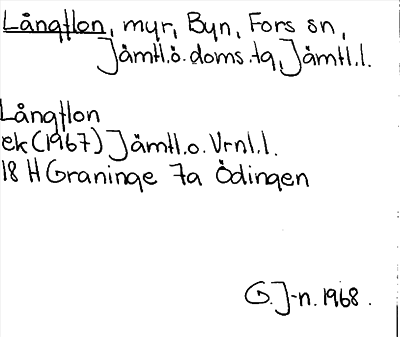 Långflon, myr, Byn, Fors sn,
Jämtl.ö.doms.tg, Jämtl.l.
Långflon
ek(1967) Jämtl.o.Vrnl.l.
18 H Graninge 7a Ödingen
G.J-n. 1968.